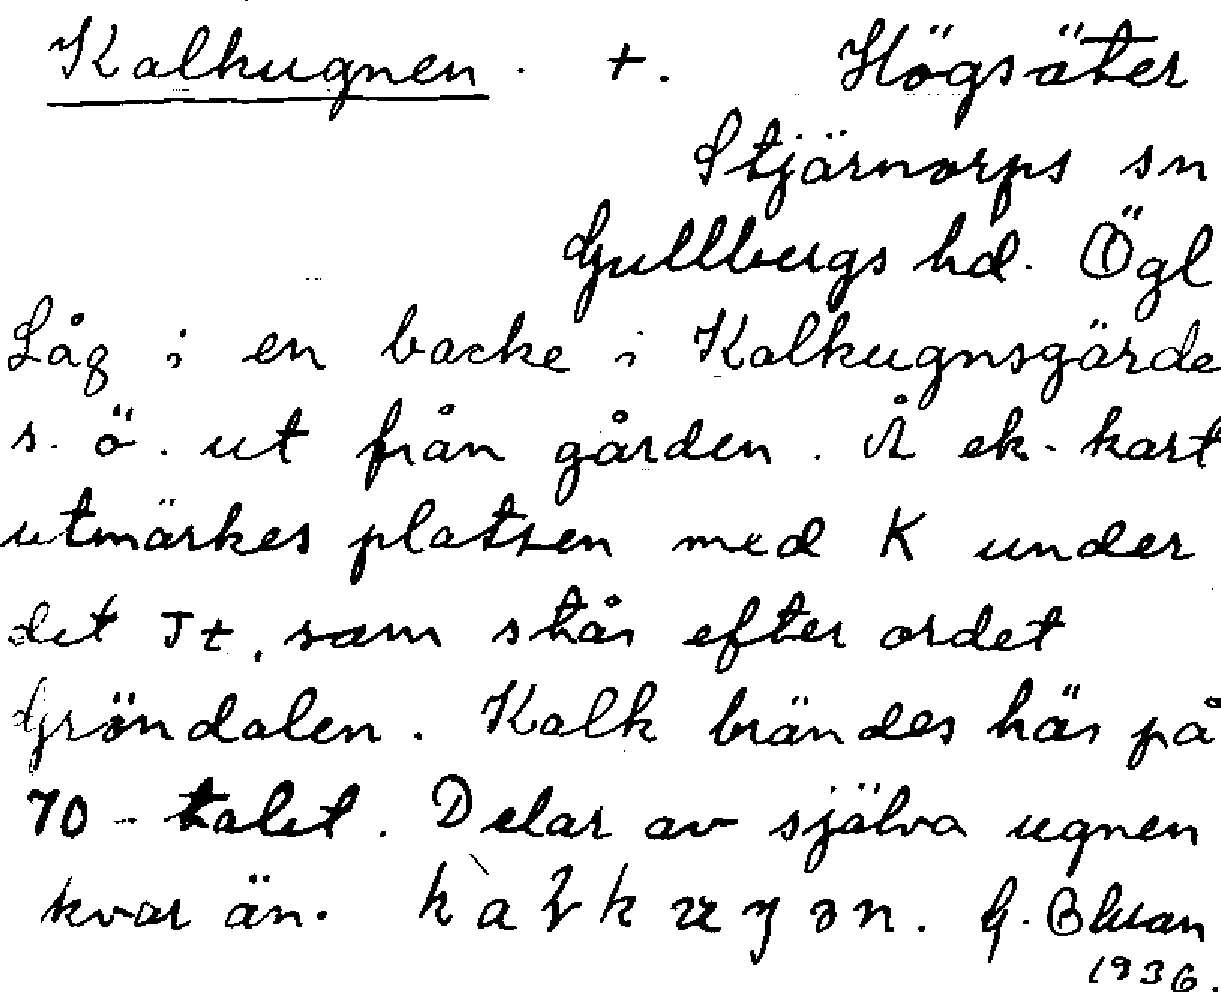 Kalkugnen. +. Högsäter
Stjärnorps sn
Gullbergs hd. Ögl
Låg i en backe i Kalkugnsgärde
s. ö. ut från gården. Å ek-kart
utmärkes platsen med K under
det Jt, som står efter ordet
Gröndalen. Kalk brändes här på
70-talet. Delar av själva ugnen
kvar än. G.
1936.